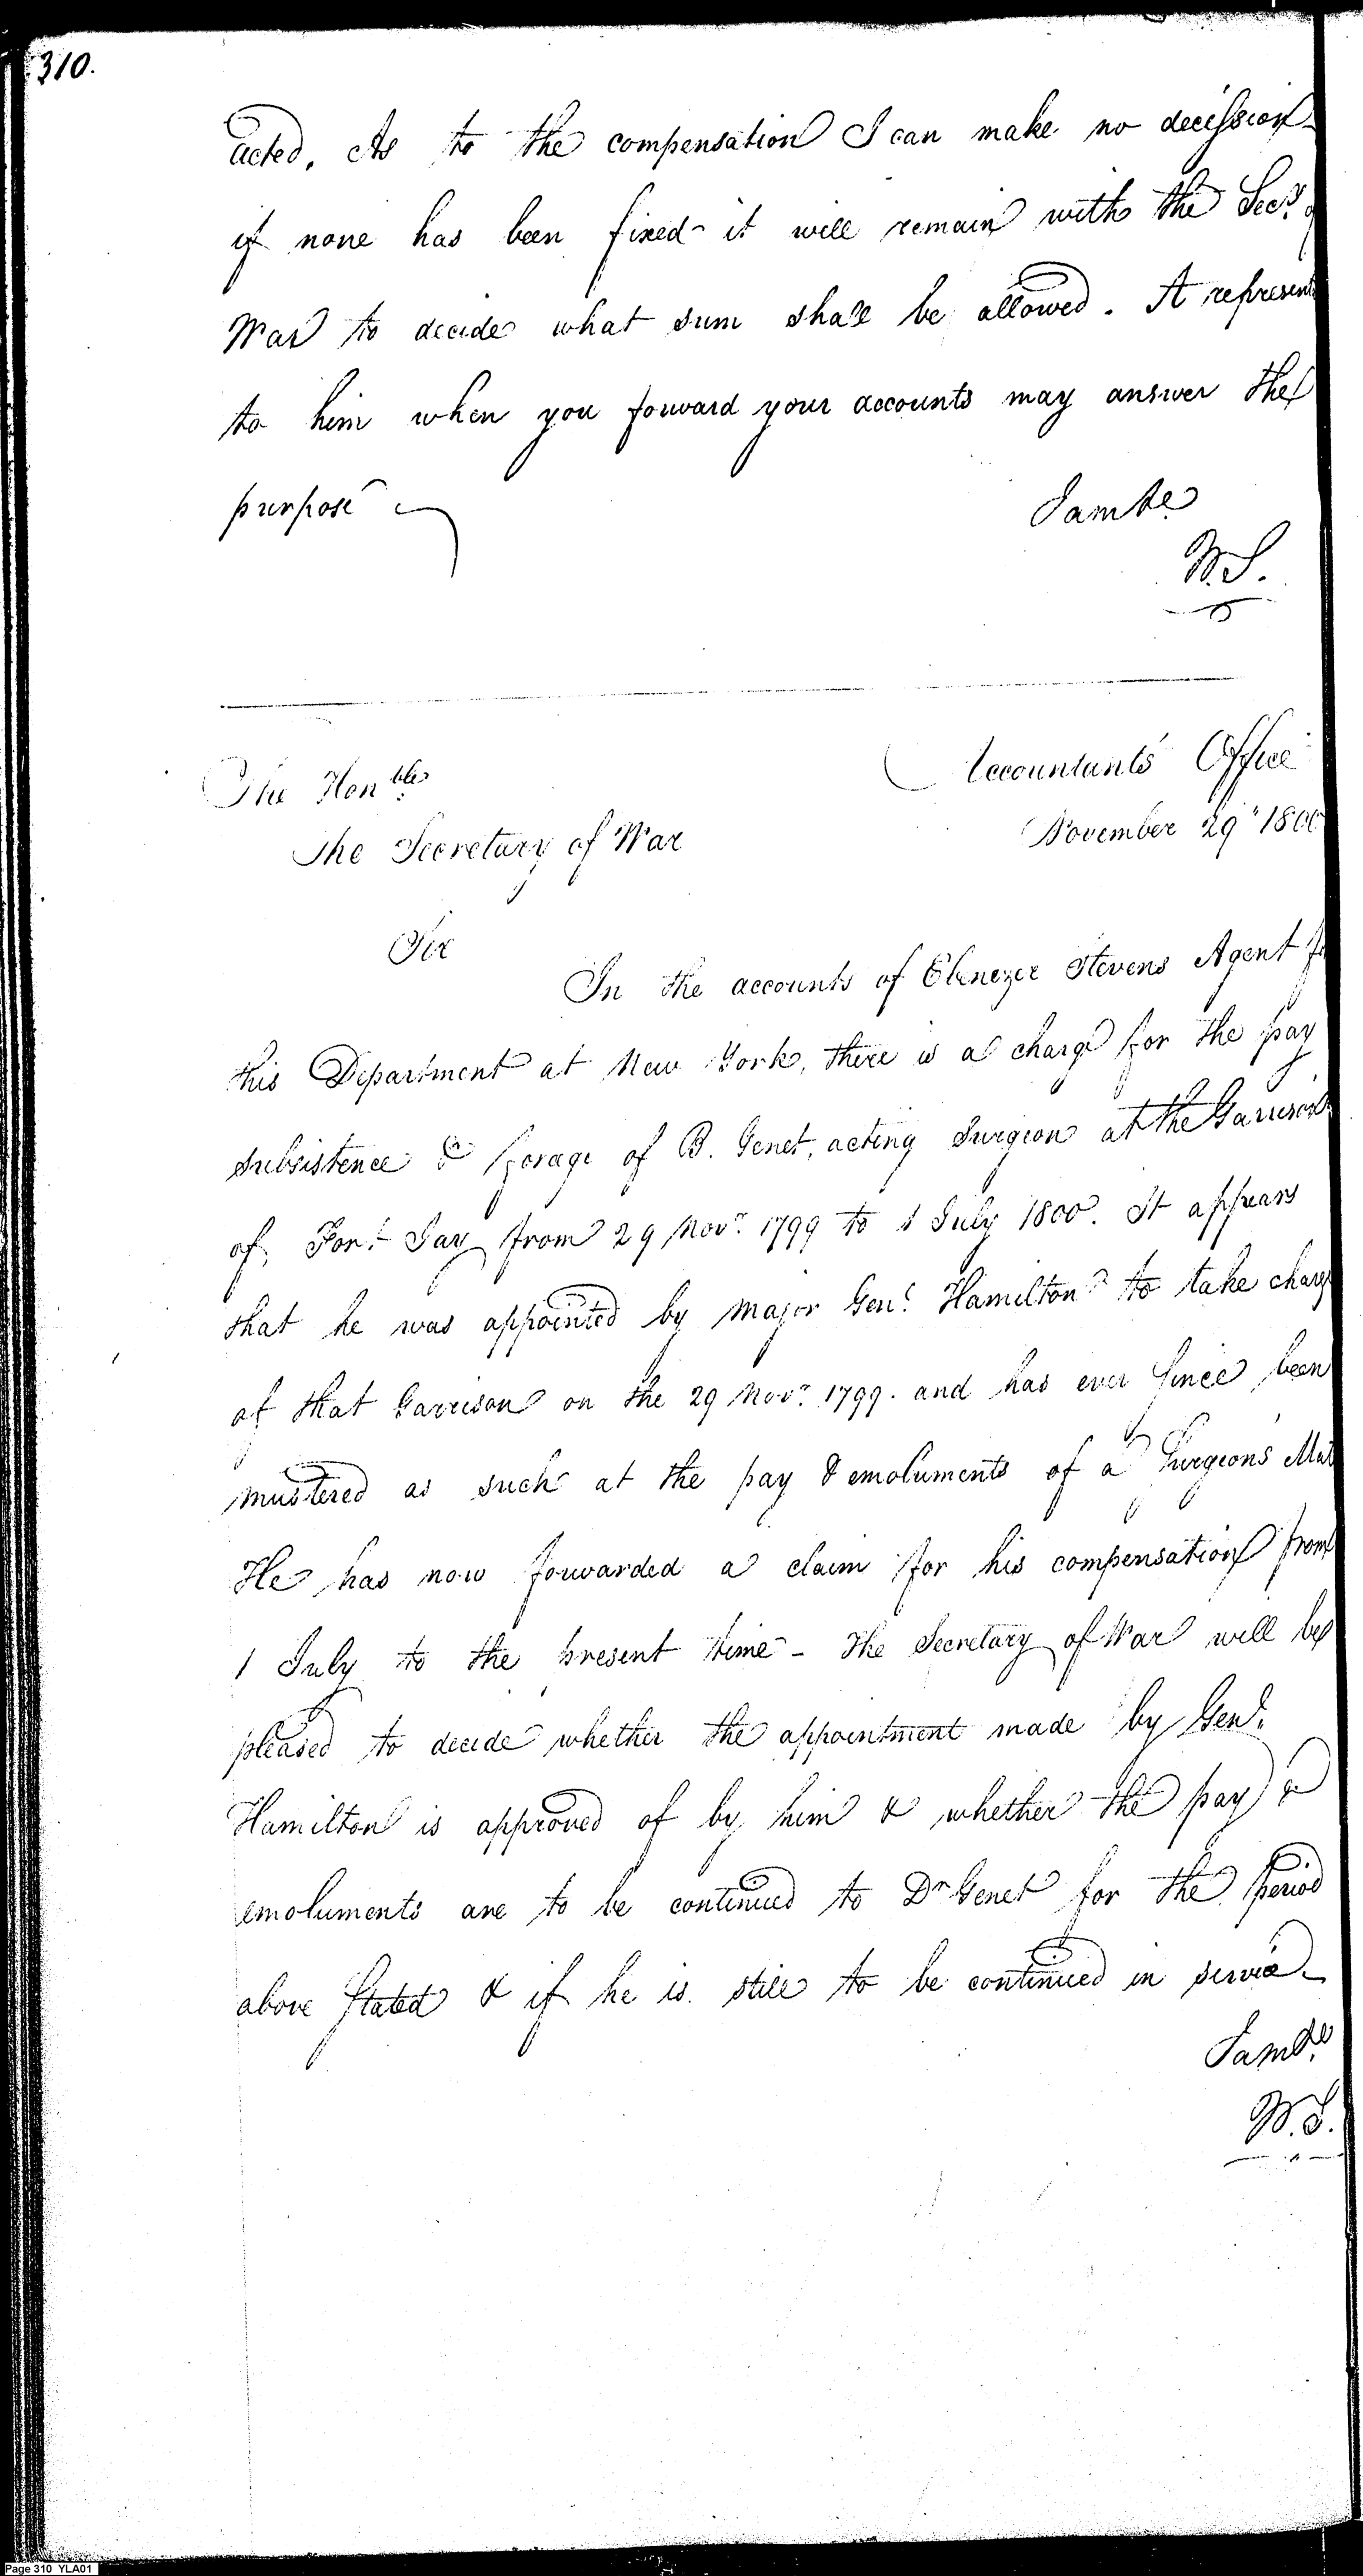 310.
acted. As to the compensation I can make no decission
if none has been fixed - it will remain with the Secy. of
War to decide what sum shall be allowed. A represent
to him when you forward your accounts may answer the
purpose
I am &c
W.S.
The Honble
Accountants Office
The Secretary of War
November 29th 1800
Sir
In the accounts of Ebenezer Stevens Agent fo
this Department at New York, there is a charge for the pay
subsistence & forage of B. Genet, acting Surgeon at the Garrison
of Fort Jay from 29 Novr. 1799 to 1 July 1800. It appears
that he was appointed by Major Genl. Hamilton to take charge
of that Garrison on the 29 Novr. 1799. and has ever since been
mustered as such at the pay & emoluments of a Surgeons Mat
He has now forwarded a claim for his compensation from
1 July to the present time - The Secretary of War will be
pleased to decide whether the appointment made by Genl.
Hamilton is approved of by him & whether the pay &
emoluments are to be continued to Dr Genet for the period
above stated & if he is still to be continued in service
I am &c
W.S.
Page 310 YLA01